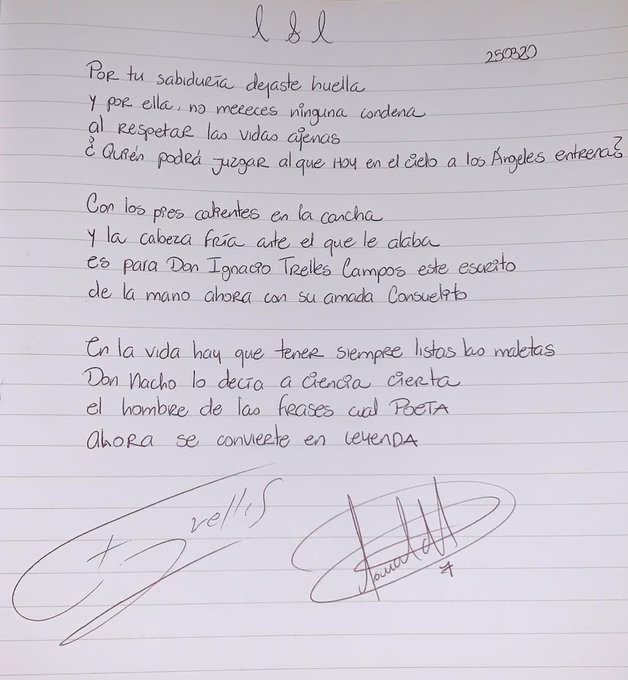 l & l
250320
Por tu sabiduría dejaste huella
y por ella, no mereces ninguna condena
al respetar las vidas ajenas
¿Quién podrá juzgar al que hoy en el cielo a los Ángeles entrena?
Con los pies calientes en la cancha
y la cabeza fría ante el que le alaba
es para Don Ignacio Trelles Campos este escrito
de la mano ahora con su amada Consuelito
En la vida hay que tener siempre listas las maletas
Don Nacho lo decía a ciencia cierta
el hombre de las frases cual POETA
ahora se convierte en LEYENDA
Trellis
7